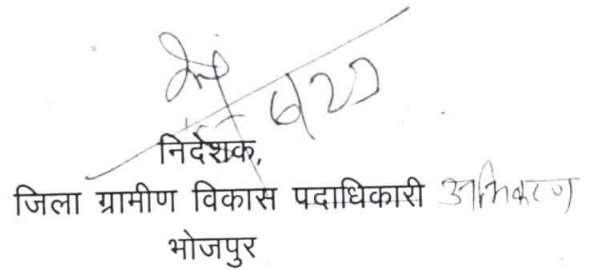 6/20
निदेशक,
जिला ग्रामीण विकास पदाधिकारी अभिकरण
भोजपुर